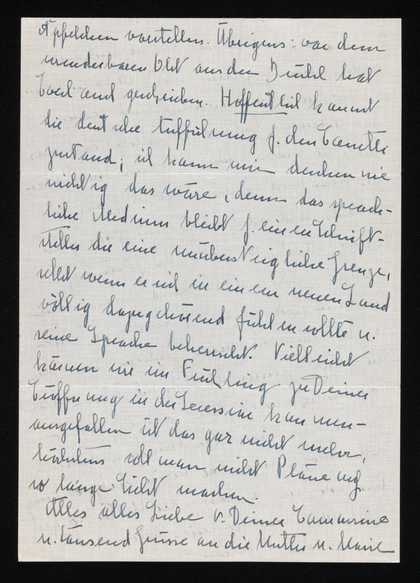 Äpfelchen vorstellen. Übrigens: von dem
wunderbaren Obst aus der hat
Carl und geschrieben. Hoffentlich kommt
die deutsche Aufführung f. den Canetti
zustand; ich kann mir denken wie
wichtig das wäre, denn das sprach-
liche Medium bleibt f. einen Schrift-
steller die eine unübersteigliche Grenze,
selbst wenn er sich in einem neuen Land
völlig dazugehörend fühlen sollte u.
seine Sprache beherrscht. Vielleicht
können wir im Frühling zu Deiner
Eröffnung in der Secession kommen-
ausgefallen ist das gar nicht mehr,
höchstens soll man nicht Pläne auf
so lange Sicht machen.
Alles alles Liebe v. Deiner
u. tausend Grüsse an die Mutter u. Marie